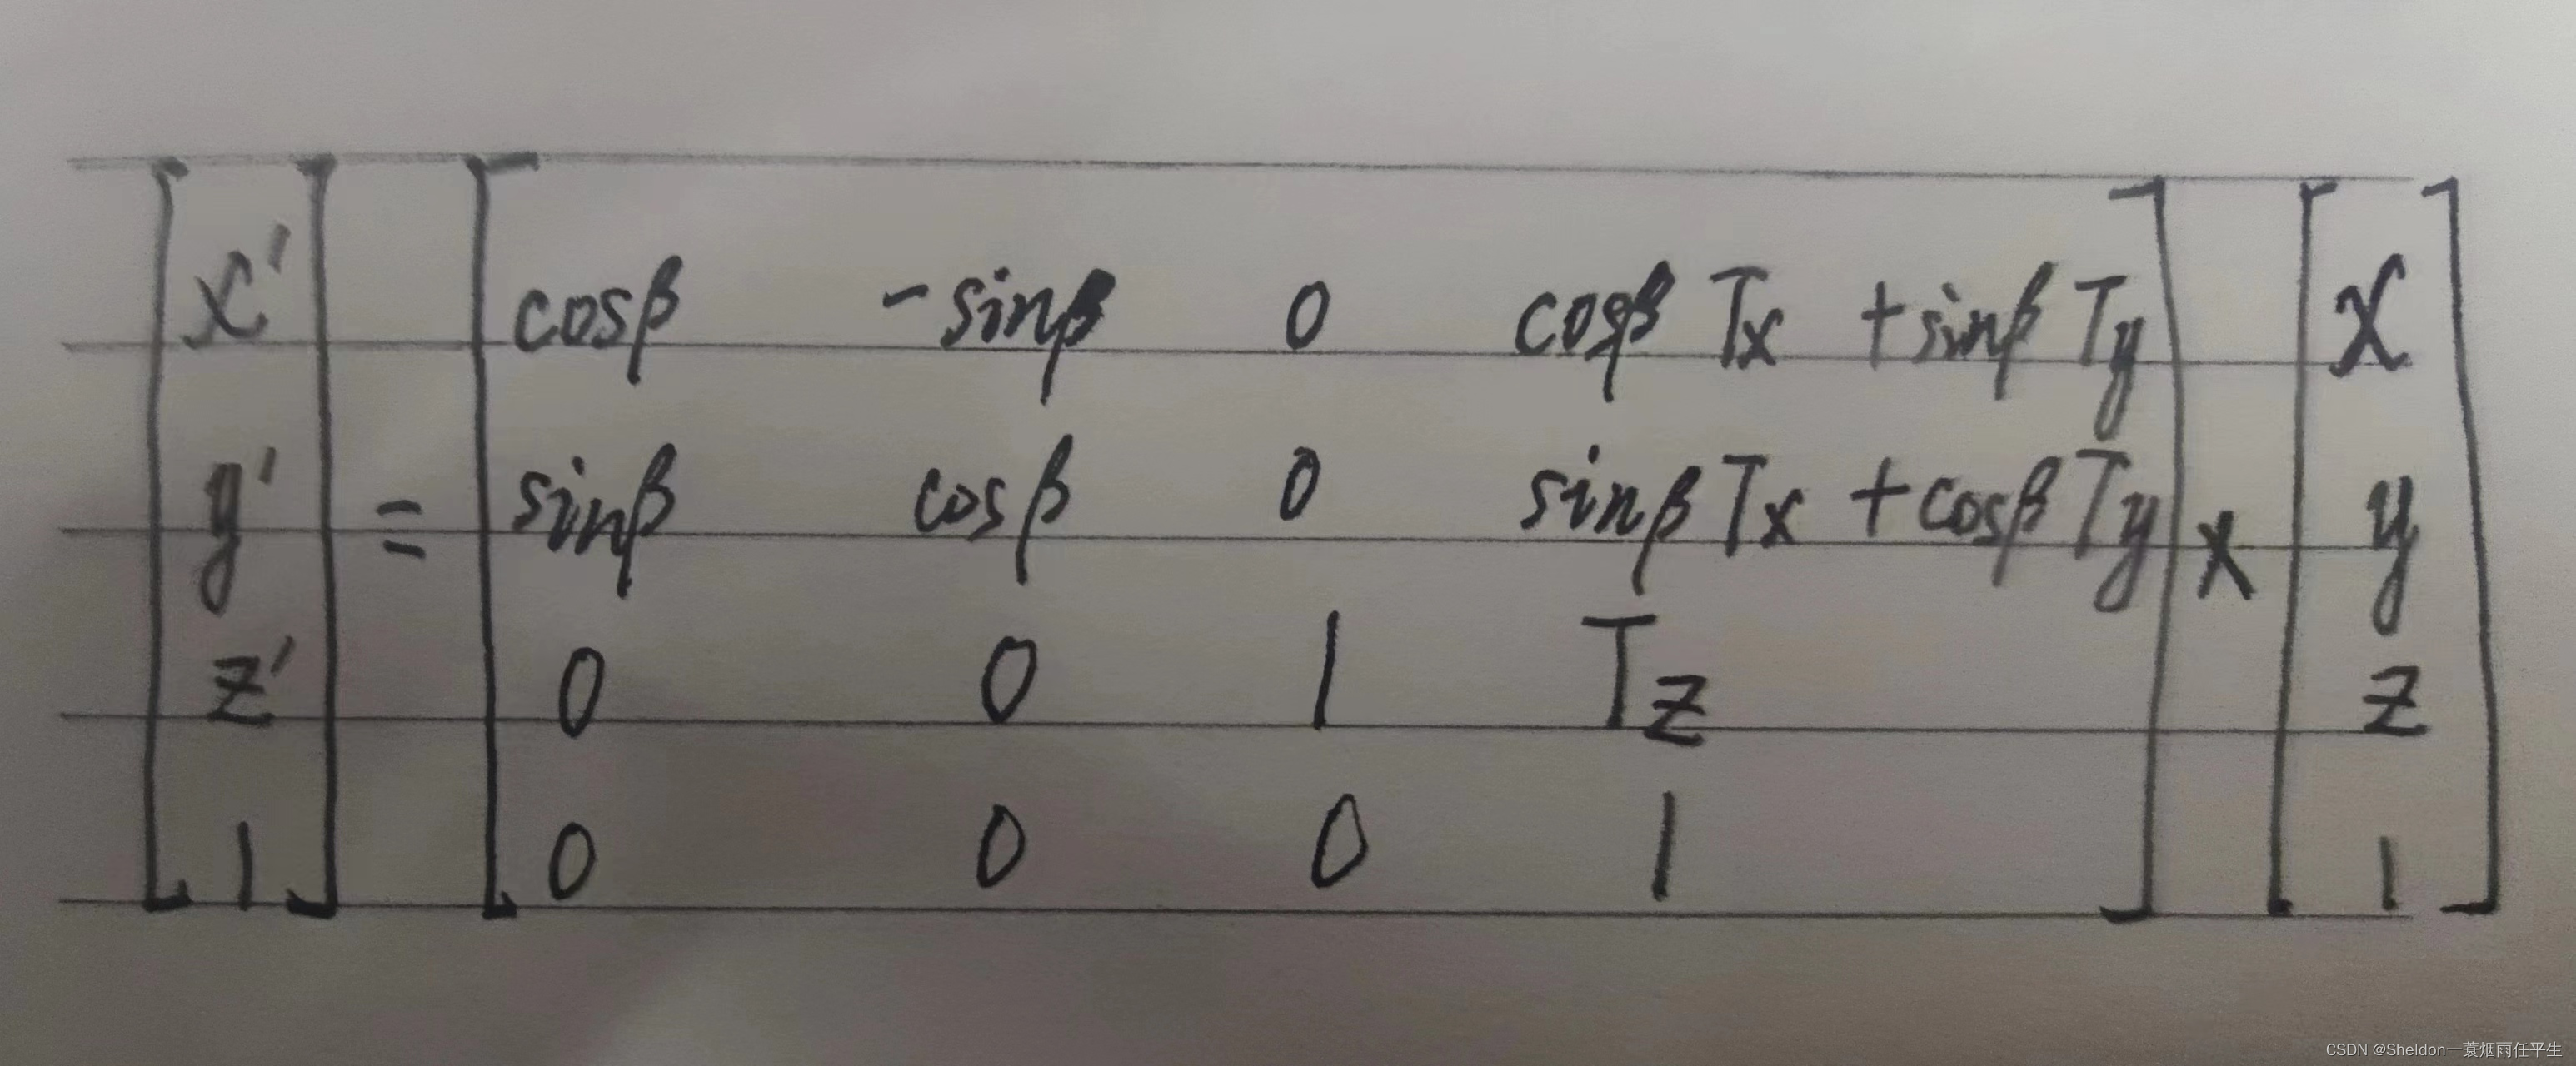 x' cosβ -sinβ 0 cosβ Tx +sinβ Ty x
y' = sinβ cosβ 0 sinβ Tx +cosβ Ty × y
z' 0 0 1 Tz z
1 0 0 0 1 1
CSDN @Sheldon一蓑烟雨任平生